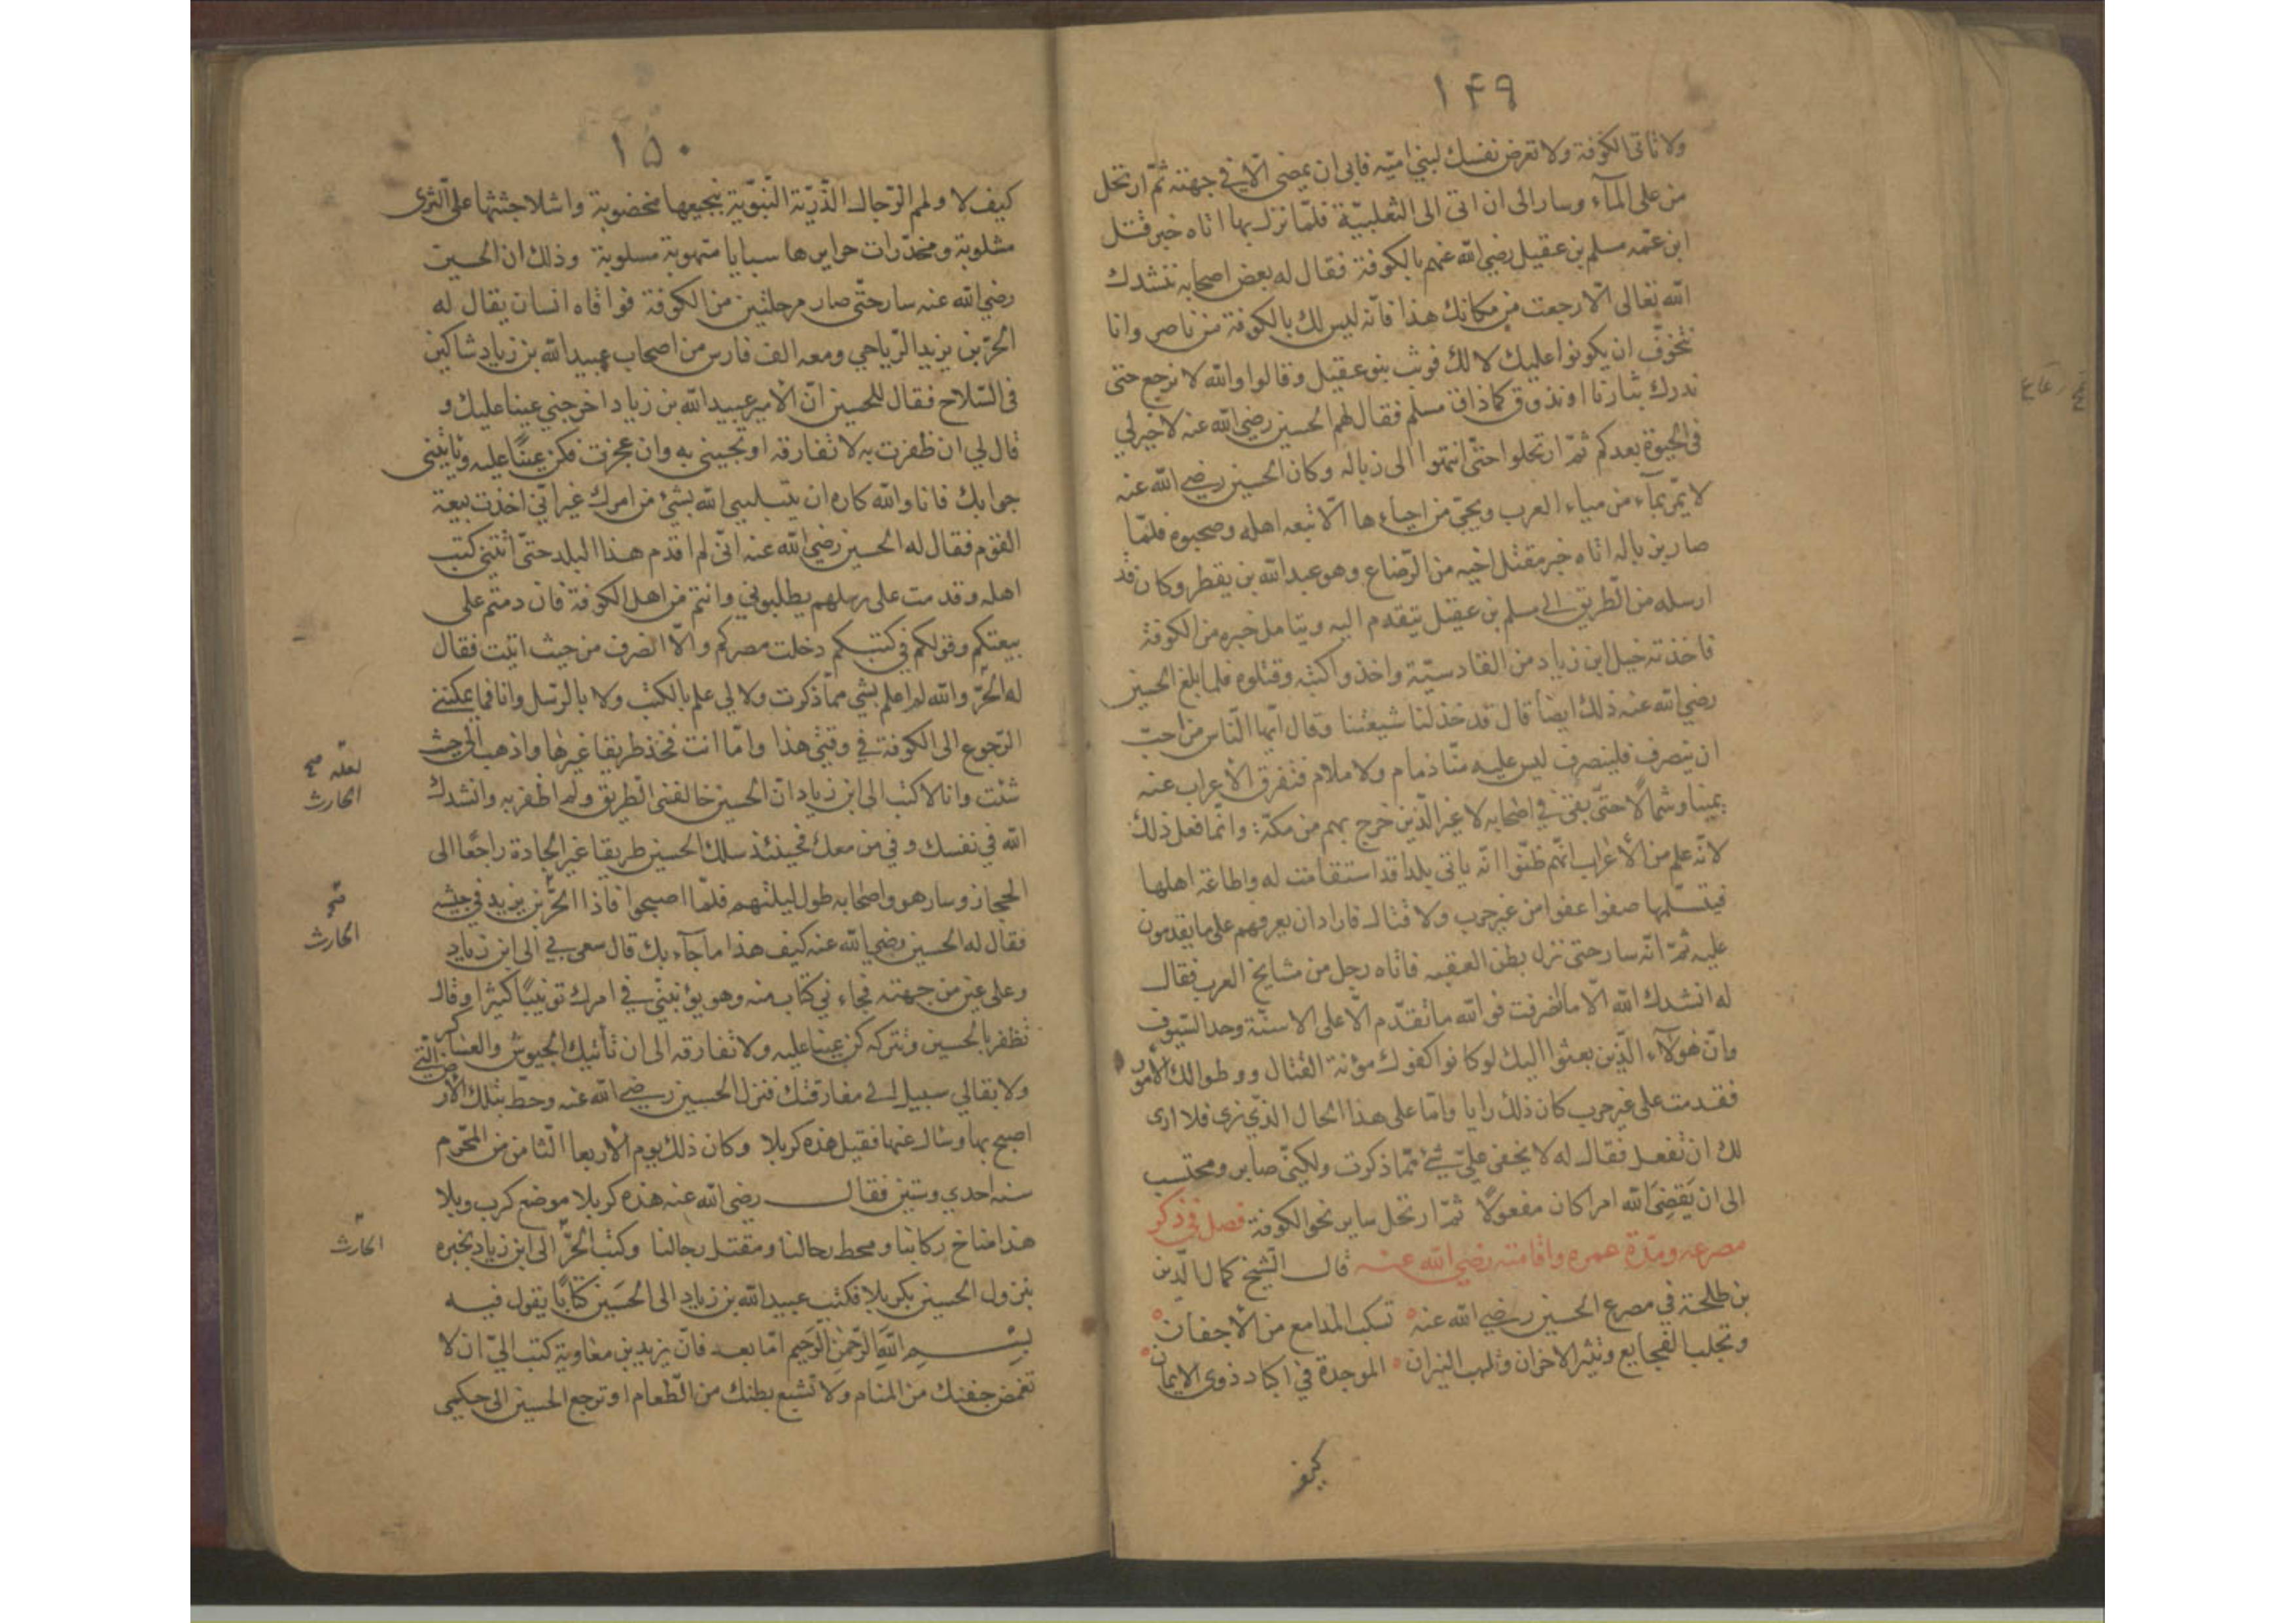 ١٤٩
ولا تاتى الكوفة ولا تعرض نفسك لبني اميّه فابى ان يمضى الّا فى جهته ثمّ ارتحل
من على المآء وسار الى ان اتى الى الثعلبيّة فلمّا نزل بها اتاه خبر قتل
ابن عمّه مسلم بن عقيل رضي الله عنهم بالكوفة فقال له بعض اصحابه ننشدك
الله تعالى الّا رجعت من مكانك هذا فانّه ليس لك بالكوفة من ناصر وانا
نتخوّف ان يكونوا عليك لا لك فوثب بنو عقيل وقالوا والله لا نرجع حتى
ندرك بثارنا او نذوق كما ذاق مسلم فقال لهم الحسين رضي الله عنه لا خير لي
فى الحيوة بعدكم ثمّ ارتحلوا حتّى انتهوا الى زباله وكان الحسين رضي الله عنه
لا يمّر بمآء من مياء العرب ويجئ من احياءها الّا تبعه اهله وصحبوه فلمّا
صار بزباله اتاه خبر مقتل اخيه من الرّضاع وهو عبد الله بن يقطر وكان قد
ارسله من الطريق الى مسلم بن عقيل يتقدم اليه ويتامل خبره من الكوفة
فاخذته خيل ابن زياد من القادسيّة واخذوا كتبه وقتلوه فلما بلغ الحسين
رضي الله عنه ذلك ايضًا قال قد خذلنا شيعتنا وقال ايّها النّاس من احبّ
ان ينصرف فلينصرف ليس عليه منّا ذمام ولا ملام فتفرق الأعراب عنه
يمينا وشمالًا حتّى بقى في اصحابه لا غير الّذين خرج بهم من مكّة وانّما فعل ذلك
لانّه علم من الأعراب انّهم ظنّوا انّه ياتى بلدا قد استقامت له واطاعة اهلها
فيتسلّمها صفوا عفوا من غير حرب ولا قتال فاراد ان يعرفهم على ما يقدمون
عليه ثمّ انّه سار حتى نزل بطن العقبه فاتاه رجل من مشايخ العرب فقال
له انشدك الله الّا ما انصرفت فوالله ما تقدّم الّا على الاسنّة وحد السّيوف
وانّ هؤلآء الّذين بعثوا اليك لو كانوا كفوك مؤنة القتال ووطوا لك الأمور
فقدمت على غير حرب كان ذلك رايا وامّا على هذا الحال الّذي ترى فلا ارى
لك ان تفعل فقال له لا يخفى عليّ شئ ممّا ذكرت ولكنّى صابر ومحتسب
الى ان يَقضِىَ الله امرا كان مفعولًا ثمّ ارتحل ساير نحو الكوفة فصل في ذكر
مصرعه ومدّة عمره واقامته رضي الله عنه قال الشّيخ كمال الدّين
بن طلحة في مصرع الحسين رضي الله عنه تسكب المدامع من الأجفان
وتجلب الفجايع وتثير الاحزان وتلهب النيران الموجدة في اكباد ذوى الايمان
كيف
١٥٠
كيف لا ولهم الرّجال الذّريّة النّبويّة بنجيعها مخضوبة واشلا جثثها على الثرى
مشلوبة ومخدّرات حرايرها سبايا منهوبة مسلوبة وذلك ان الحسين
رضي الله عنه سار حتّى صار مرحلتين من الكوفة فوافاه انسان يقال له
الحرّ بن يزيد الرّياحي ومعه الف فارس من اصحاب عبيد الله بن زياد شاكين
فى السّلاح فقال للحسين انّ الأمير عبيد الله بن زياد اخرجني عينا عليك و
قال لي ان ظفرت به لا تفارقه او تجيني به وان عجزت فكن عينًا عليه وتاتينى
جوابك فانا والله كاره ان يبتليني الله بشئ من امرك غير اتّي اخذت بيعة
القوم فقال له الحسين رضي الله عنه انّى لم اقدم هذا البلد حتّى اتتني كتب
اهله وقدمت على رسلهم يطلبوني وانتم من اهل الكوفة فان دمتم على
بيعتكم وقولكم في كتبكم دخلت مصركم والّا انصرف من حيث اتيت فقال
له الحرّ والله لم اعلم بشي ممّا ذكرت ولا لي علم بالكتب ولا بالرّسل وانا فما يمكننے
الرّجوع الى الكوفة في وقتي هذا وامّا انت فخذ طريقا غيرها واذهب الى حيث
شئت وانا لاكتب الى ابن زياد انّ الحسين خالفنى الطريق ولم اظفر به وانشدك
الله في نفسك وفي من معك فحينئذ سلك الحسين طريقا غير الجادة راجعًا الى
الحجاز وسار هو واصحابه طول ليلتهم فلمّا اصبحوا فاذا الحرّ بن يزيد في جيشه
فقال له الحسين رضي الله عنه كيف هذا ما جآء بك قال سعى بي الى ابن زياد
وعلى عين من جهته فجاءني كتاب منه وهو يؤنبني في امرك تونيبًا كثيرا وقال
تظفر بالحسين وتتركه كن عينا عليه ولا تفارقه الى ان تأتيك الجيوش والعساكر
ولا بقا لي سبيل الى مفارقتك فنزل الحسين رضي الله عنه وحطّ بتلك الأرض التى
اصبح بها وسال عنها فقيل هذه كربلا وكان ذلك يوم الأربعا الثّامن من المحرّم
سنه احدي وستين فقال رضى الله عنه هذه كربلا موضع كرب وبلا
هذا مناخ ركابنا ومحط رحالنا ومقتل رجالنا وكتب الحرّ الى ابن زياد يخبره
بنزول الحسين بكربلا فكتب عبيد الله بن زياد الى الحسَين كتابًا يقول فيه
بسم اللهِ الرّحمٰن الرّحيم امّا بعد فانّ يزيد بن معاوية كتب اليّ ان لا
تغمض جفنك من المنام ولا تشبع بطنك من الطّعام او ترجع الحسين الى حكمى
لعلّه صح
الحارث
الحارث
الحارث